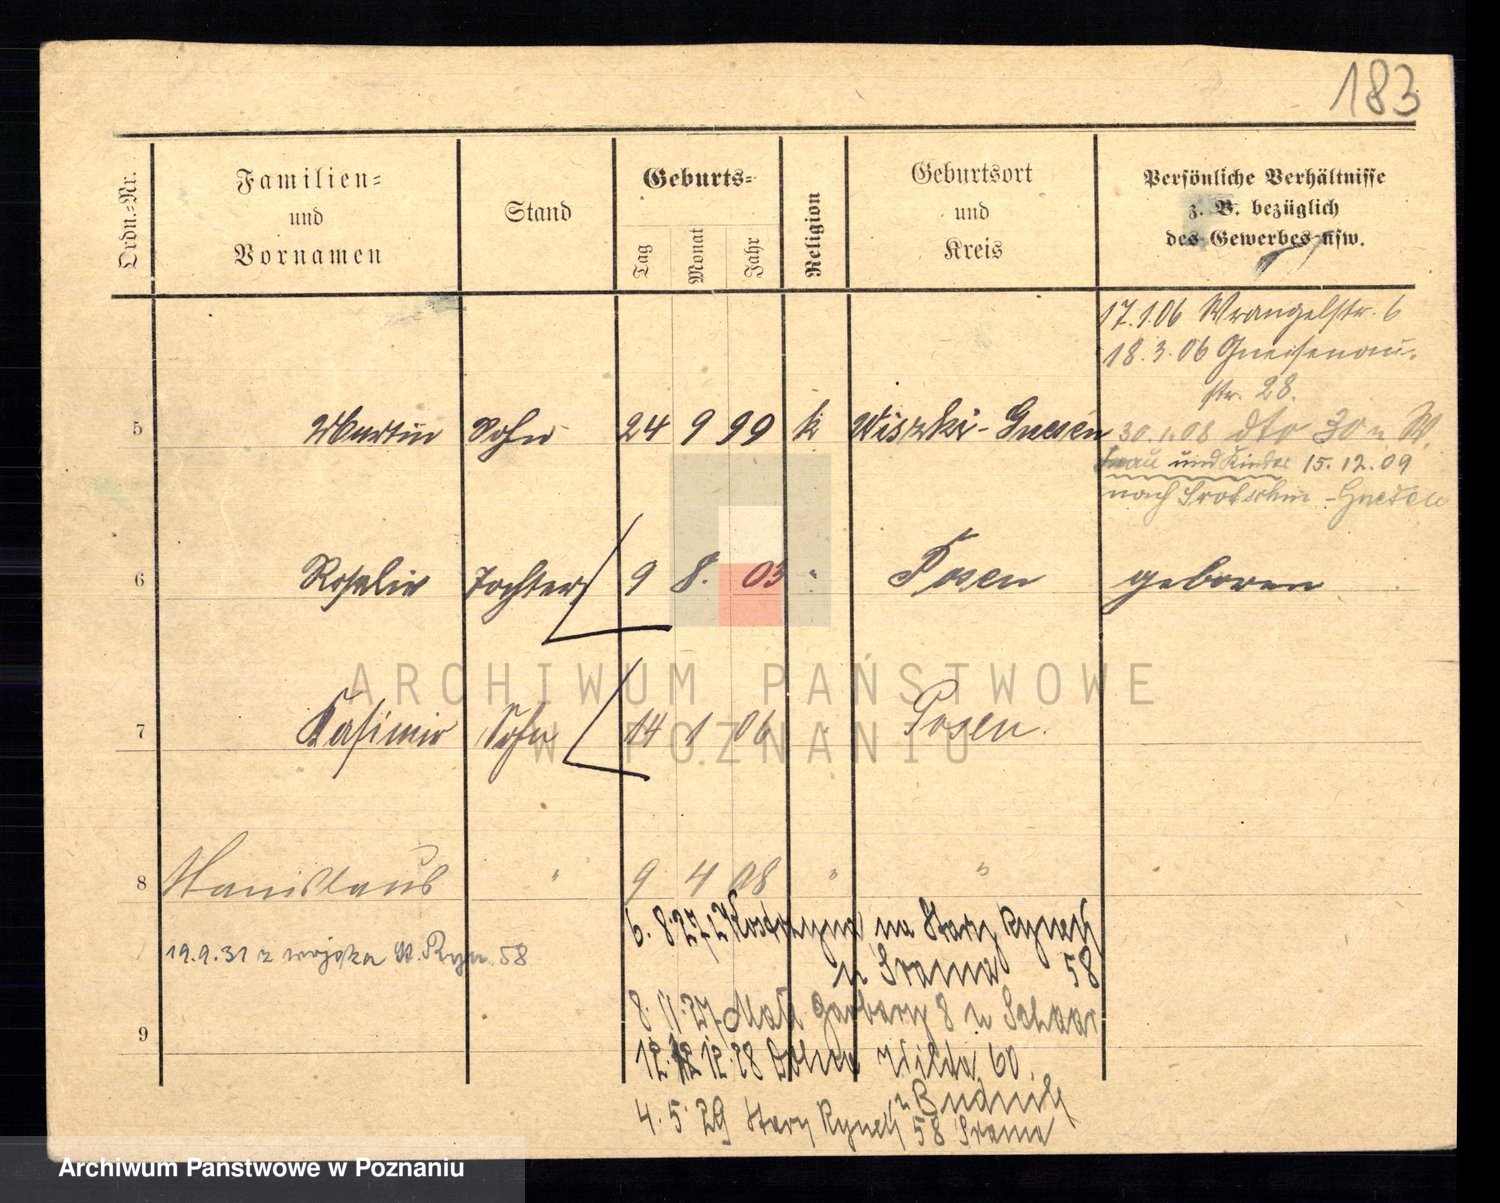 183
Ordn.=Nr.
Familien=
und
Vornamen
Stand
Geburts=
Tag
Monat
Jahr
Religion
Geburtsort
und
Kreis
Persönliche Verhältnisse
z. B. bezüglich
des Gewerbes usw.
17.1.06 Wrangelstr. 6
18.3.06 Gneisenau-
str. 28.
5 Martin Sohn 24 9 99 k Gnesen
30.1.08 dto 30
Frau und Kinder 15.12.09
nach - Gnesen
6 Rosalie Tochter 9 8. 03 " Posen geboren
7 Kasimir Sohn 14 1 06 " Posen.
8 Stanislaus " 9 4 08 " "
6. 8.27 na Stary Rynek
58
19.9.31 z wojska St. Ryn. 58
8. 11. 27 Małe Garbary 8
9
12. 12. 28 Dolna Wilda 60.
4. 5. 29 Stary Rynek 58
ARCHIWUM PAŃSTWOWE
W POZNANIU
Archiwum Państwowe w Poznaniu